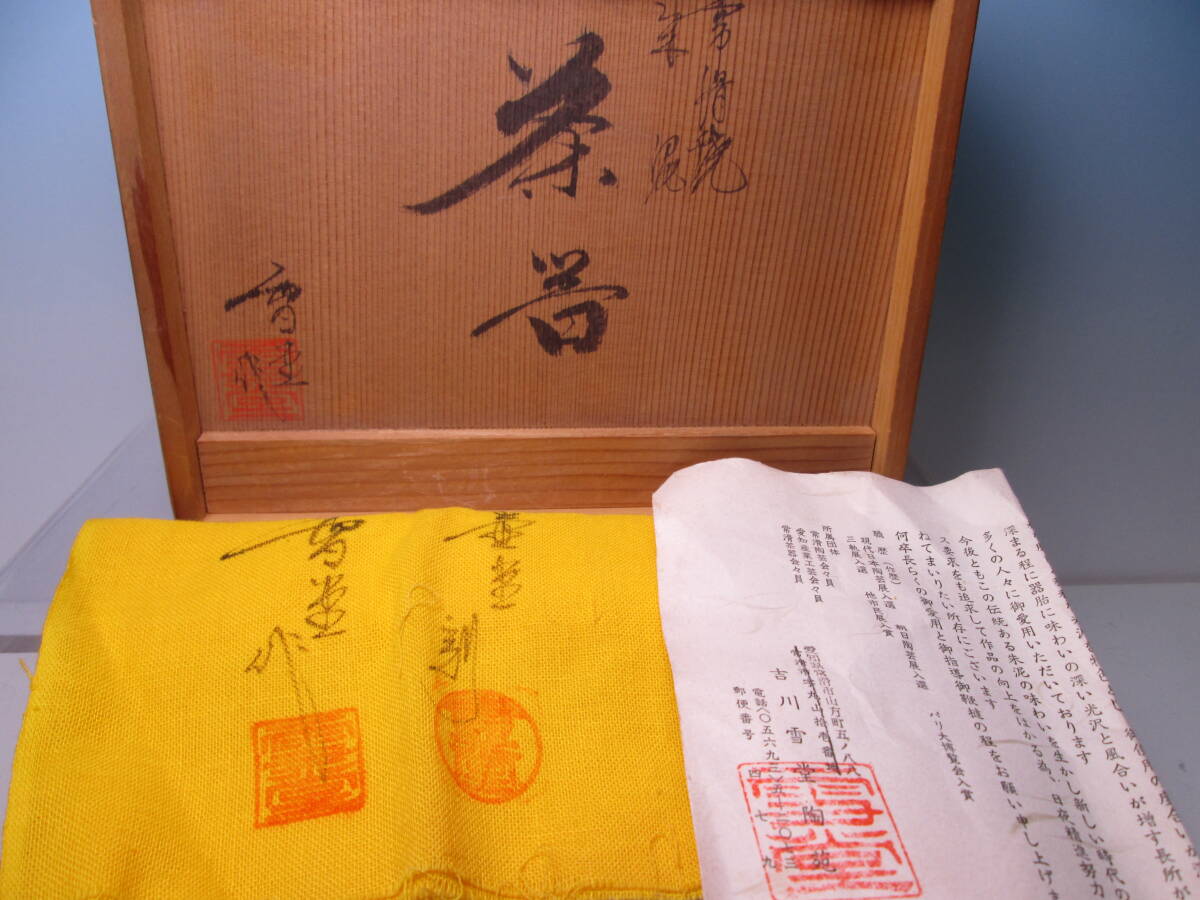 常滑焼
朱泥
茶器
雪堂作
雪堂作
雪堂
深まる程に器胎に味わいの深い光沢と風合いが増す長所が
多くの人々に御愛用いただいております
今後ともこの伝統ある朱泥の味わいを生かし新しい時代の
ス要求をも追求して作品の向上をはかる為、日夜精進努力
ねてまいりたい所存にございます
何卒長らくの御愛用と御指導御鞭撻の程をお願い申し上げま
職歴（作歴）
現代日本陶芸展入選 朝日陶芸展入選 パリ大博覧会入賞
三軌展入選 他市民展入賞
所属団体
常滑陶芸会々員
愛知産業工芸会々員
常滑茶器会々員
常滑市山方町五ノ八八
吉川雪堂陶苑
郵便番号 四七九
雪堂